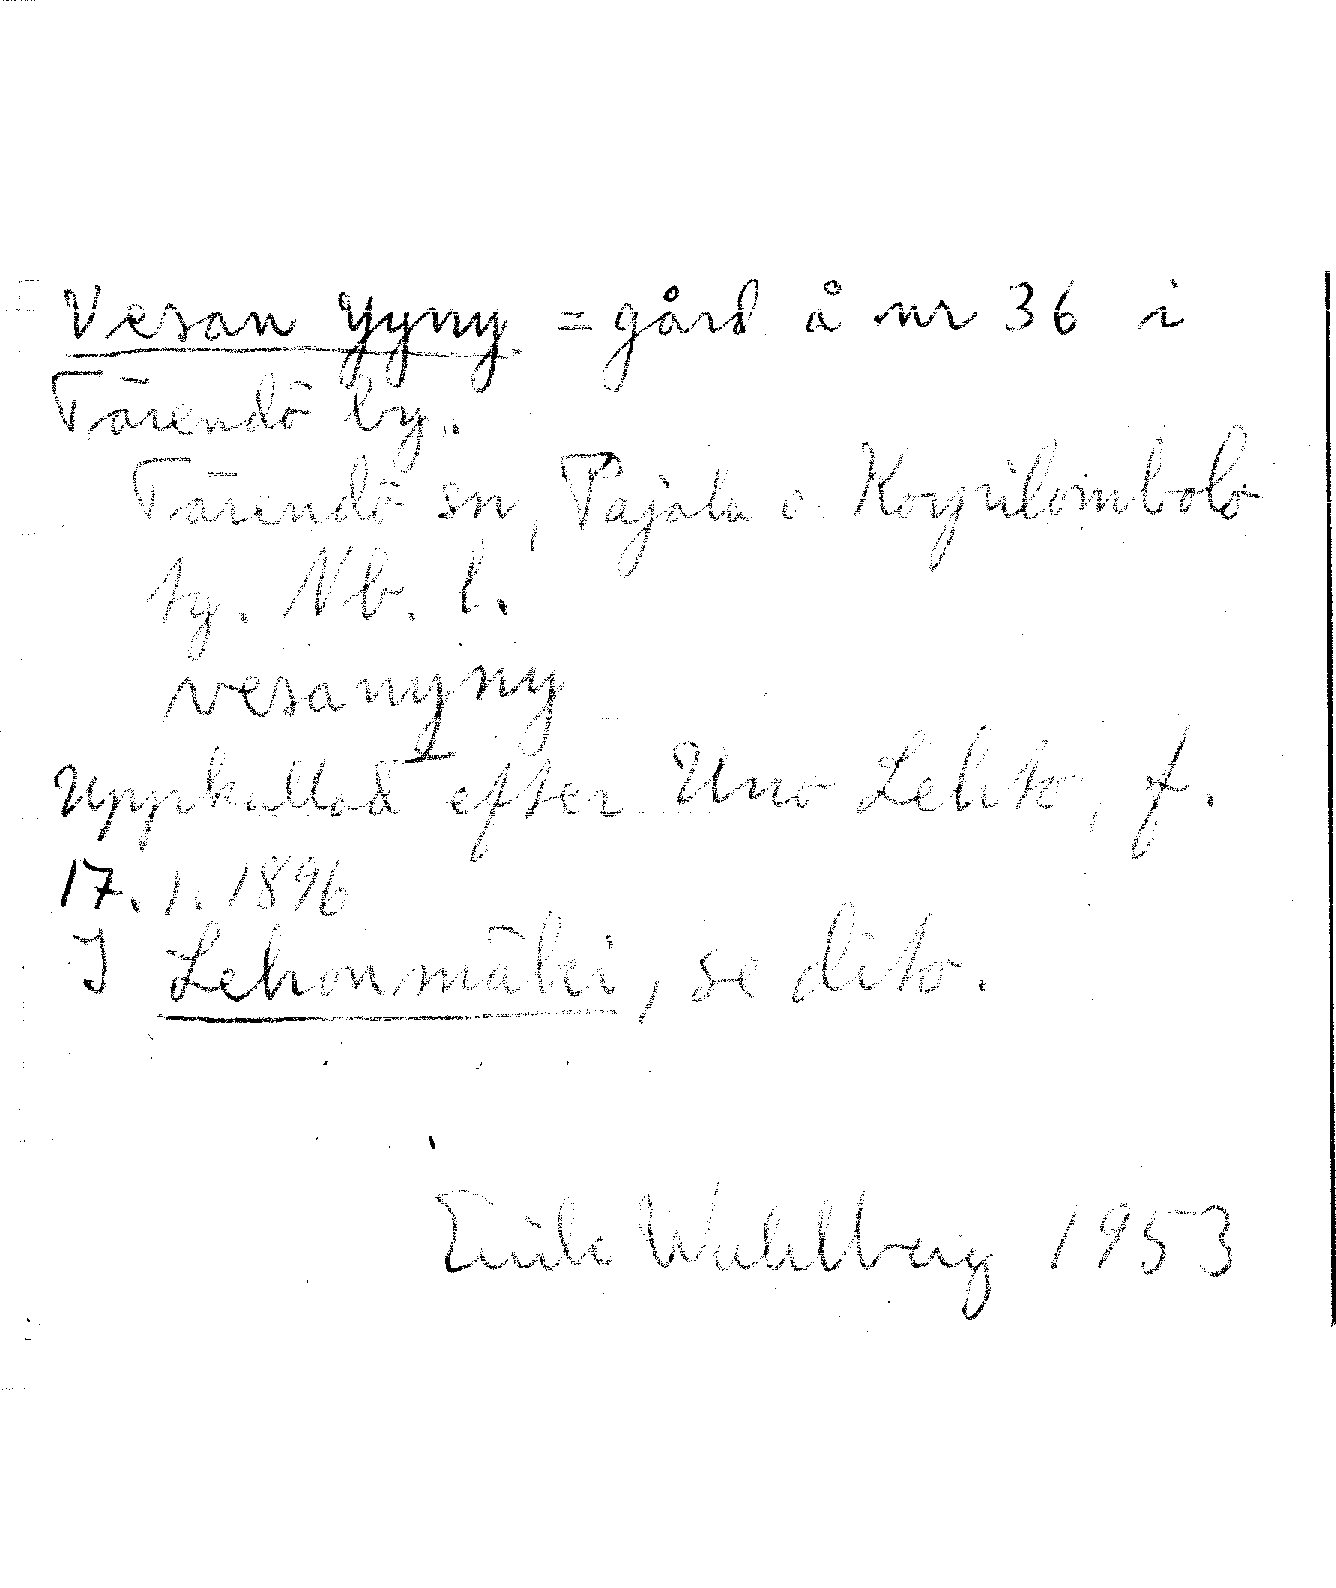 Vesan Yyny = gård å nr 36 i
Tärendö by.
Tärendö sn, Pajala o. Korpilombolo
tg. Nb. l.
vesanyny
Uppkallad efter Uno Lehto, f.
17. 1. 1896
I Lehonmäki, se dito.
Erik Wahlberg 1953